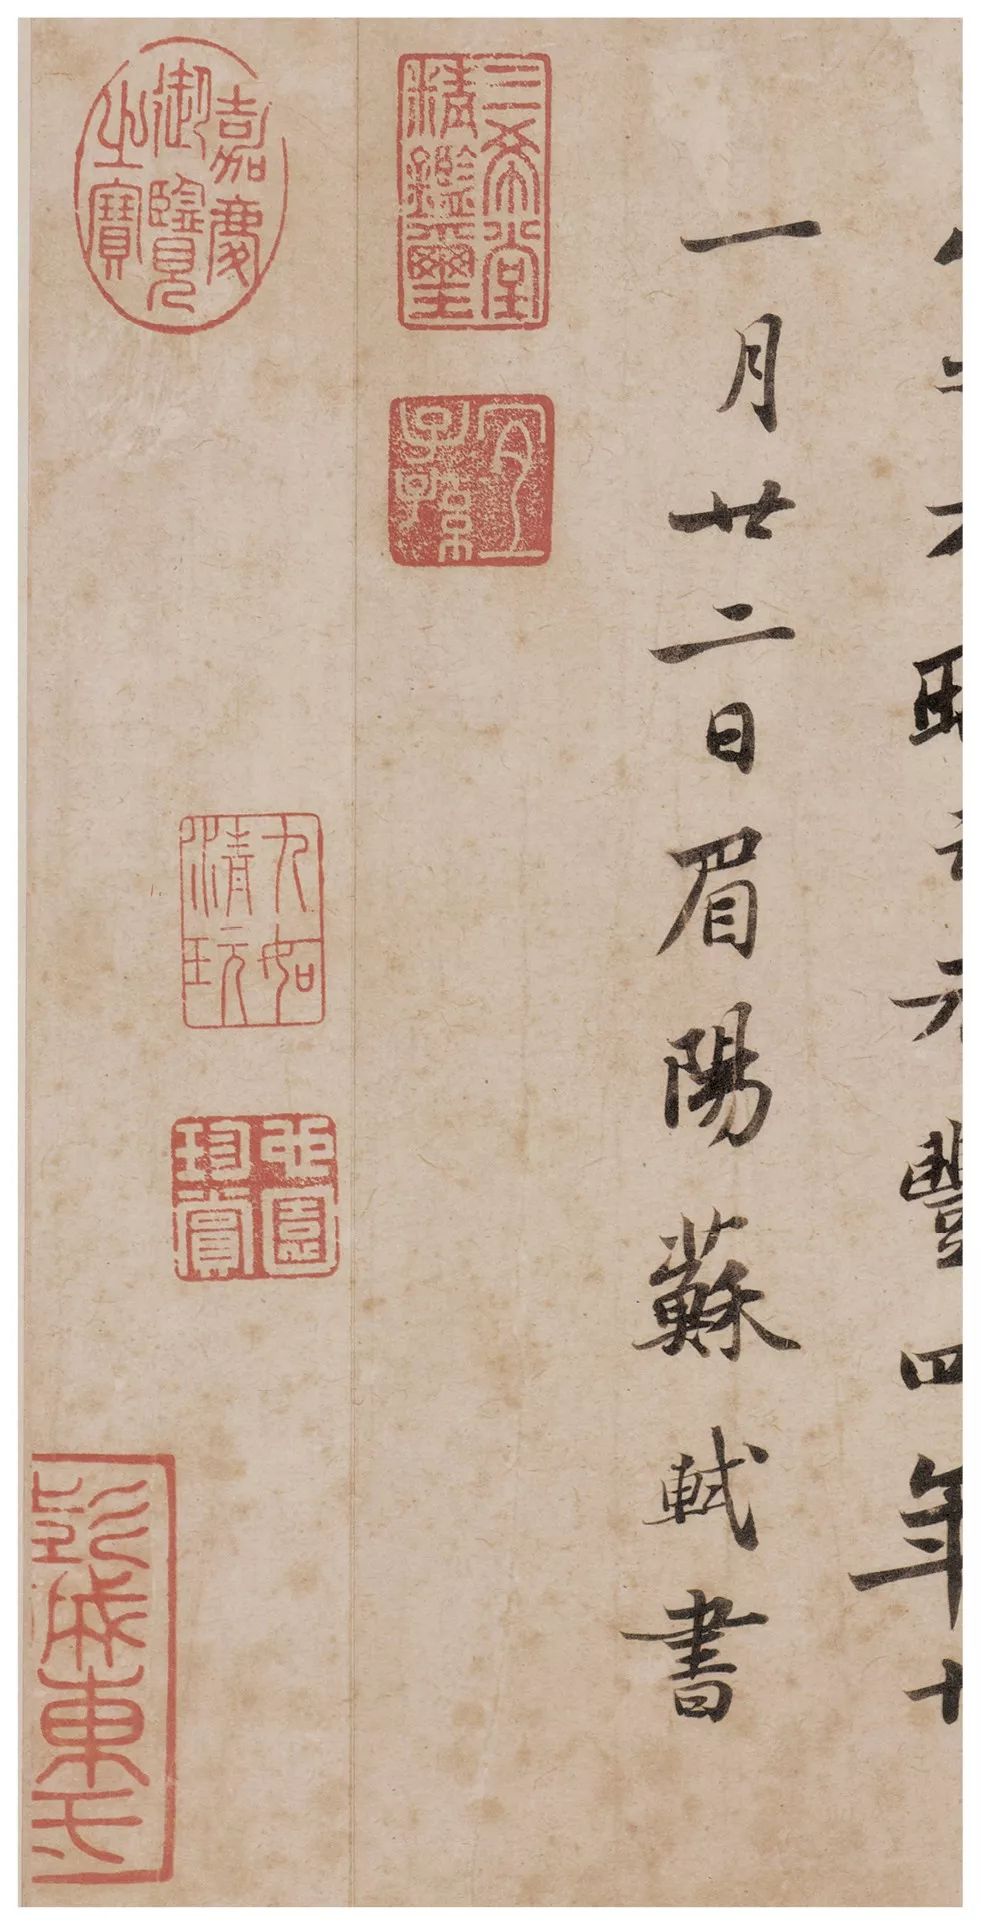 元豐四年十
一月廿二日眉陽蘇軾書
三希堂精鑑璽
宜子孫
嘉慶御覽之寶
九如清玩
園珍賞